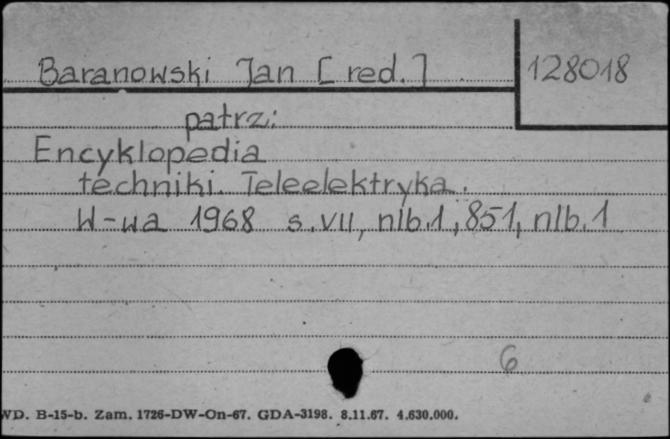 Baranowski Jan [red.] 128018
patrz:
Encyklopedia
techniki. Teleelektryka.
W-wa 1968 s. VII, nlb.1, 851, nlb.1
6
WD. B-15-b. Zam. 1726-DW-On-67. GDA-3198. 8.11.67. 4.630.000.